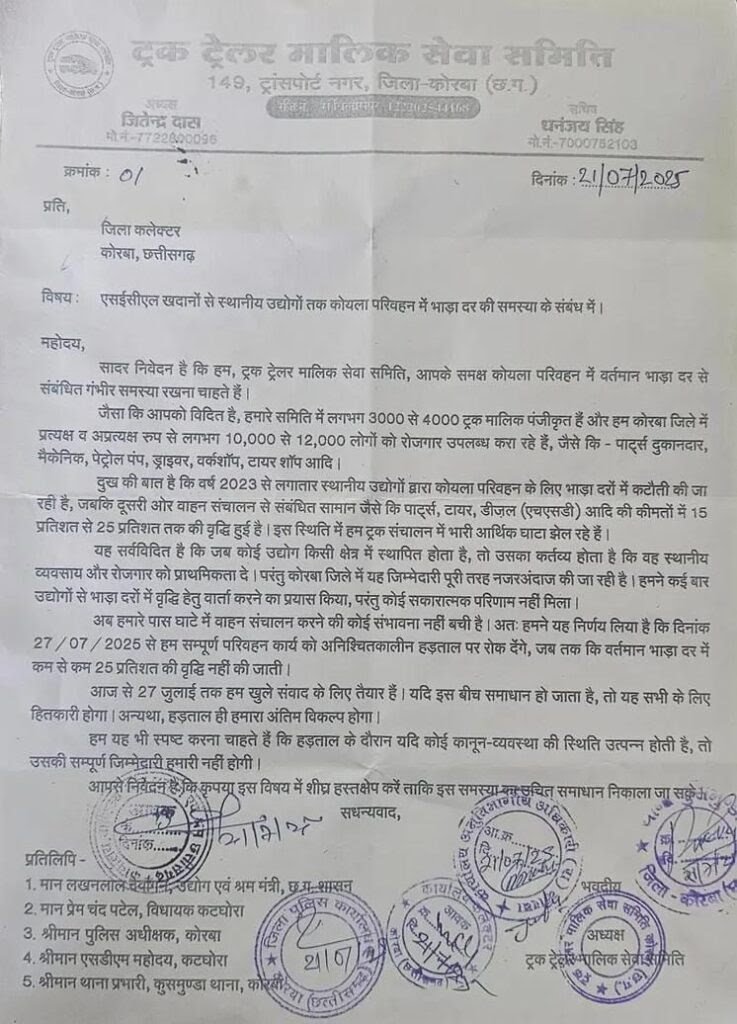 ट्रक ट्रेलर मालिक सेवा समिति
149, ट्रांसपोर्ट नगर, जिला-कोरबा (छ.ग.)
अध्यक्ष
जितेन्द्र दास
सचिव
धनंजय सिंह
मो.नं.-7000752103
क्रमांक : 01
दिनांक : 21/07/2025
प्रति,
जिला कलेक्टर
कोरबा, छत्तीसगढ़
विषय : एसईसीएल खदानों से स्थानीय उद्योगों तक कोयला परिवहन में भाड़ा दर की समस्या के संबंध में।
महोदय,
सादर निवेदन है कि हम, ट्रक ट्रेलर मालिक सेवा समिति, आपके समक्ष कोयला परिवहन में वर्तमान भाड़ा दर से
संबंधित गंभीर समस्या रखना चाहते हैं।
जैसा कि आपको विदित है, हमारे समिति में लगभग 3000 से 4000 ट्रक मालिक पंजीकृत हैं और हम कोरबा जिले में
प्रत्यक्ष व अप्रत्यक्ष रुप से लगभग 10,000 से 12,000 लोगों को रोजगार उपलब्ध करा रहे हैं, जैसे कि - पार्ट्स दुकानदार,
मैकेनिक, पेट्रोल पंप, ड्राइवर, वर्कशॉप, टायर शॉप आदि।
दुख की बात है कि वर्ष 2023 से लगातार स्थानीय उद्योगों द्वारा कोयला परिवहन के लिए भाड़ा दरों में कटौती की जा
रही है, जबकि दूसरी ओर वाहन संचालन से संबंधित सामान जैसे कि पार्ट्स, टायर, डीज़ल (एचएसडी) आदि की कीमतों में 15
प्रतिशत से 25 प्रतिशत तक की वृद्धि हुई है। इस स्थिति में हम ट्रक संचालन में भारी आर्थिक घाटा झेल रहे हैं।
यह सर्वविदित है कि जब कोई उद्योग किसी क्षेत्र में स्थापित होता है, तो उसका कर्तव्य होता है कि वह स्थानीय
व्यवसाय और रोजगार को प्राथमिकता दे। परंतु कोरबा जिले में यह जिम्मेदारी पूरी तरह नजरअंदाज की जा रही है। हमने कई बार
उद्योगों से भाड़ा दरों में वृद्धि हेतु वार्ता करने का प्रयास किया, परंतु कोई सकारात्मक परिणाम नहीं मिला।
अब हमारे पास घाटे में वाहन संचालन करने की कोई संभावना नहीं बची है। अतः हमने यह निर्णय लिया है कि दिनांक
27 / 07 / 2025 से हम सम्पूर्ण परिवहन कार्य को अनिश्चितकालीन हड़ताल पर रोक देंगे, जब तक कि वर्तमान भाड़ा दर में
कम से कम 25 प्रतिशत की वृद्धि नहीं की जाती।
आज से 27 जुलाई तक हम खुले संवाद के लिए तैयार हैं। यदि इस बीच समाधान हो जाता है, तो यह सभी के लिए
हितकारी होगा। अन्यथा, हड़ताल ही हमारा अंतिम विकल्प होगा।
हम यह भी स्पष्ट करना चाहते हैं कि हड़ताल के दौरान यदि कोई कानून-व्यवस्था की स्थिति उत्पन्न होती है, तो
उसकी सम्पूर्ण जिम्मेदारी हमारी नहीं होगी।
आपसे निवेदन है कि कृपया इस विषय में शीघ्र हस्तक्षेप करें ताकि इस समस्या का उचित समाधान निकाला जा सके।
सधन्यवाद,
प्रतिलिपि -
भवदीय
1. मान लखनलाल देवांगन, उद्योग एवं श्रम मंत्री, छ.ग. शासन
2. मान प्रेम चंद पटेल, विधायक कटघोरा
3. श्रीमान पुलिस अधीक्षक, कोरबा
अध्यक्ष
4. श्रीमान एसडीएम महोदय, कटघोरा
ट्रक ट्रेलर मालिक सेवा समिति
5. श्रीमान थाना प्रभारी, कुसमुण्डा थाना, कोरबा